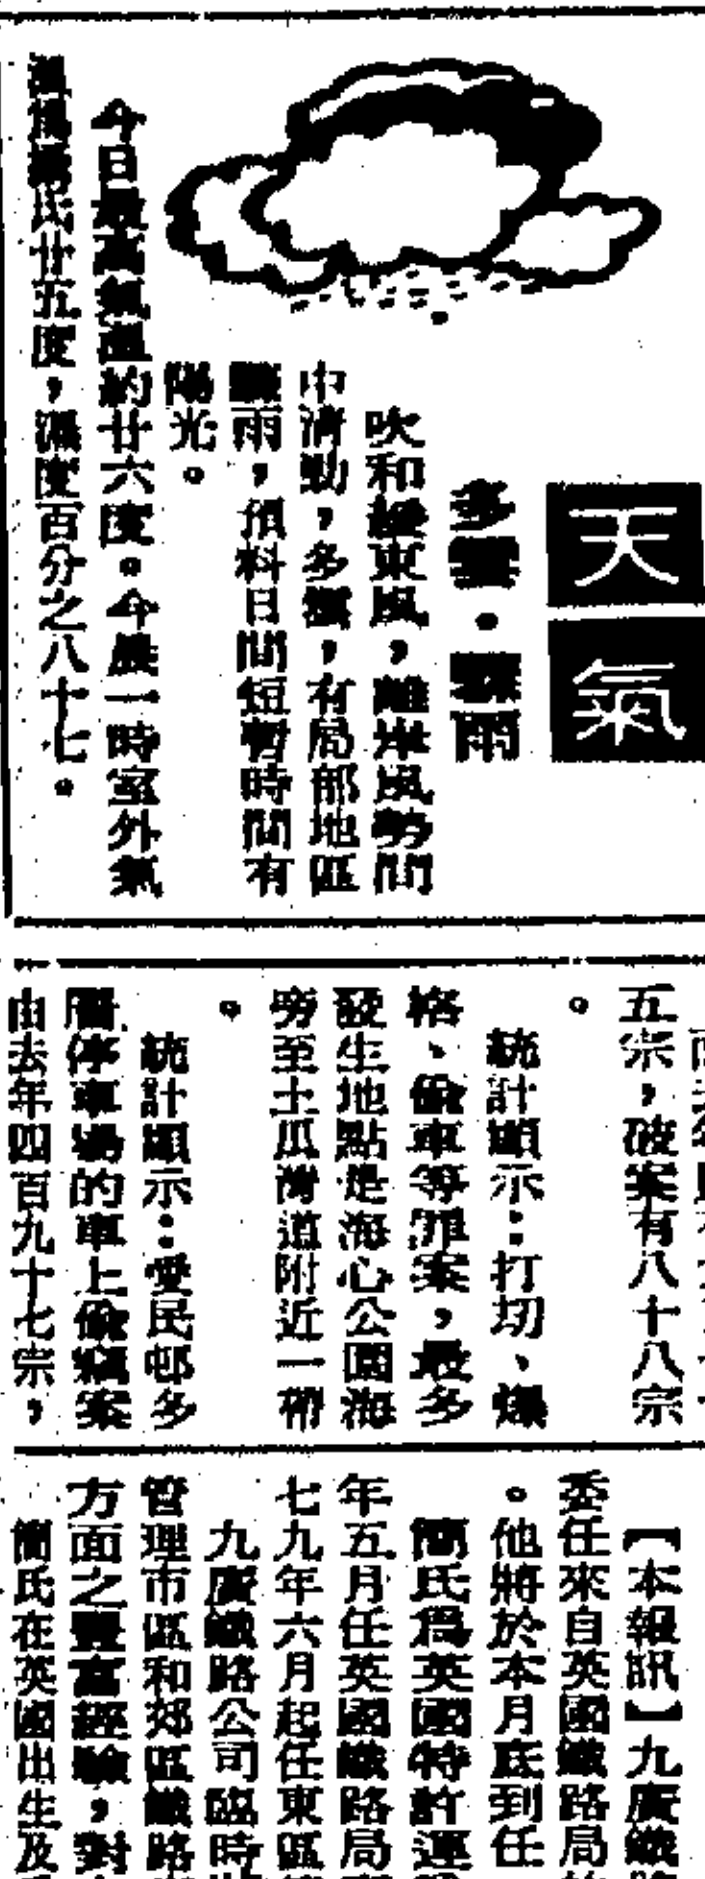 天氣
多雲．驟雨
吹和緩東風，離岸風勢間
中清勁，多雲，有局部地區
驟雨，預料日間短暫時間有
陽光。
今日最高氣溫約廿六度。今晨一時室外氣
溫爲攝氏廿五度，濕度百分之八十七。
五宗，破案有八十八宗
。
統計顯示：打切、爆
格、偷車等罪案，最多
發生地點是海心公園海
旁至土瓜灣道附近一帶
。
統計顯示：愛民邨多
層停車場的車上偷竊案
由去年四百九十七宗，
【本報訊】九廣鐵路
委任來自英國鐵路局
。他將於本月底到任
簡氏爲英國特許運
年五月任英國鐵路局
七九年六月起任東區
九廣鐵路公司臨時
管理市區和郊區鐵路
方面之豐富經驗，對
簡氏在英國出生及